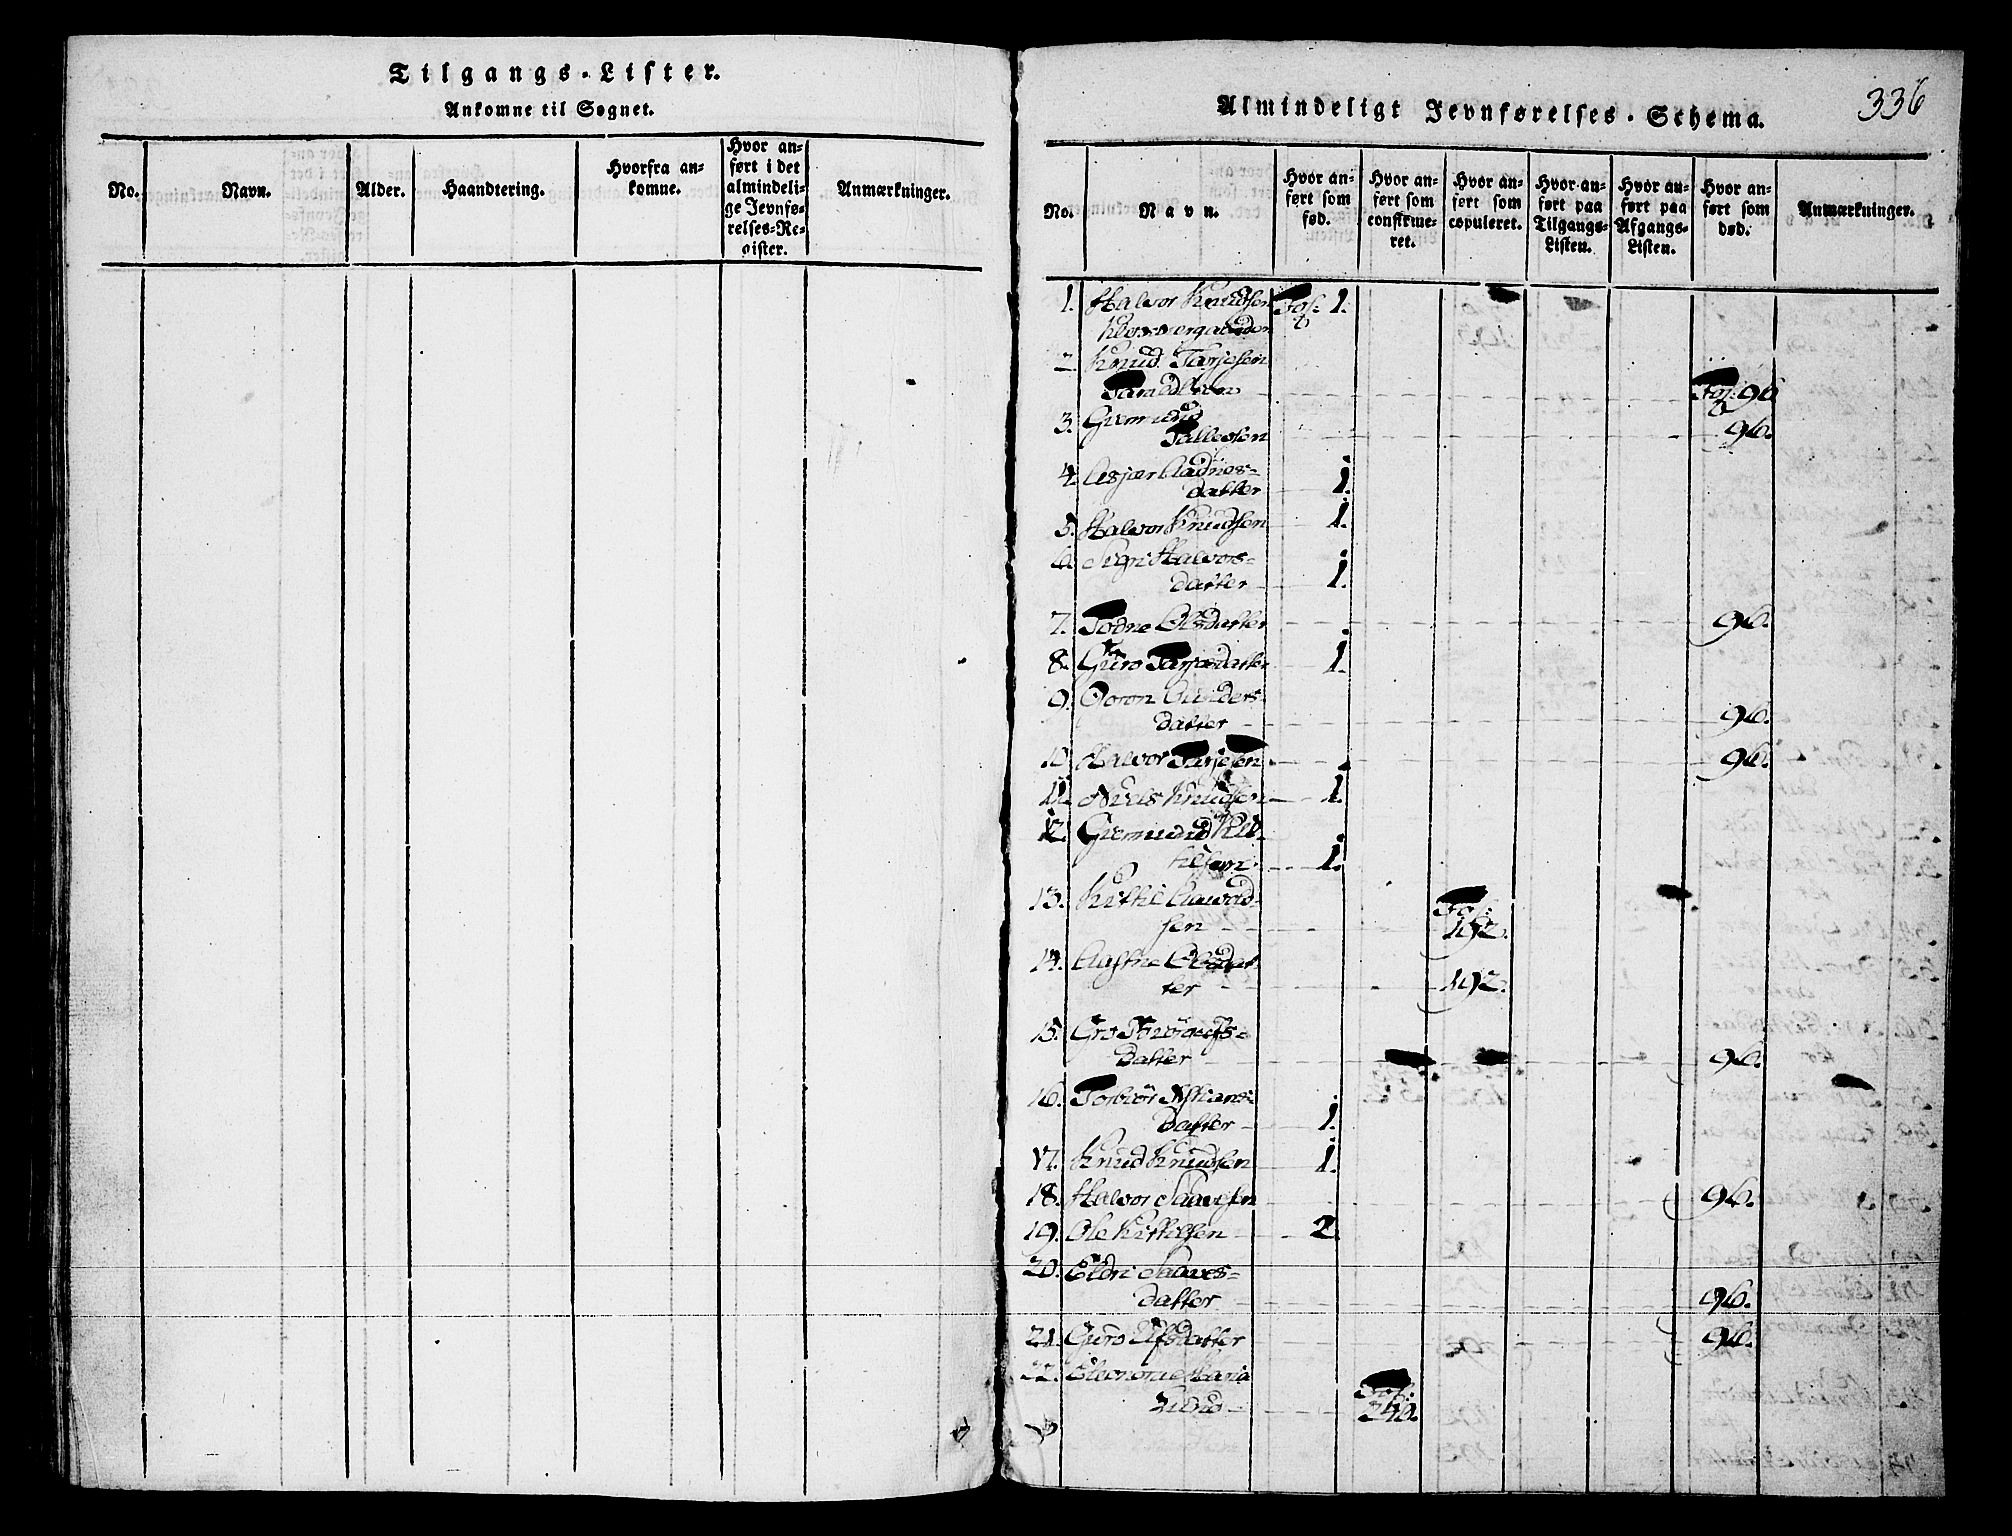 Tilgangs-Lister.
Ankomne til Søgnet.
No.
Navn.
Alder.
Haandtering.
Hvorfra an-
komne.
Hvor an-
ført i det
almindeli-
ge Jevnfø-
relses-Re-
gister.
Anmærkninger.
336
Almindeligt Jevnførelses-Schema.
No.
Navn.
Hvor an-
ført som
fød.
Hvor an-
ført som
confirme-
ret.
Hvor an-
ført som
copuleret.
Hvor an-
ført paa
Tilgangs-
Listen.
Hvor an-
ført paa
Afgangs-
Listen.
Hvor an-
ført som
død.
Anmærkninger.
1. Halvor Knudsen Fol: 1.
2. Knud Tarjesen
Fol: 96
3. Giermund
Tallevsen 96.
4. Asjær Aadnes-
datter 1.
5. Halvor Knudsen 1.
6. Sigri Halvors-
datter 1.
7. Todne Olsdatter 96.
8. Guro Tarjesdatter 1.
9. Gunders-
datter 96.
10. Halvor Tarjesen 96.
11. Niels Knudsen 1.
12. Giermund Kit-
tilsen 1.
13. Kittil Aavold-
sen Fol: 192.
14. Olsdat-
ter 192.
15. Gro
Datter 96.
16. Torbiør
Datter 1.
17. Knud Knudsen 1.
18. Halvor Salvesen 96.
19. Ole Kittilsen 2.
20. Eldri Salves-
datter 96.
21. Guro datter 96.
22. Maria
Lund Fol: 240.